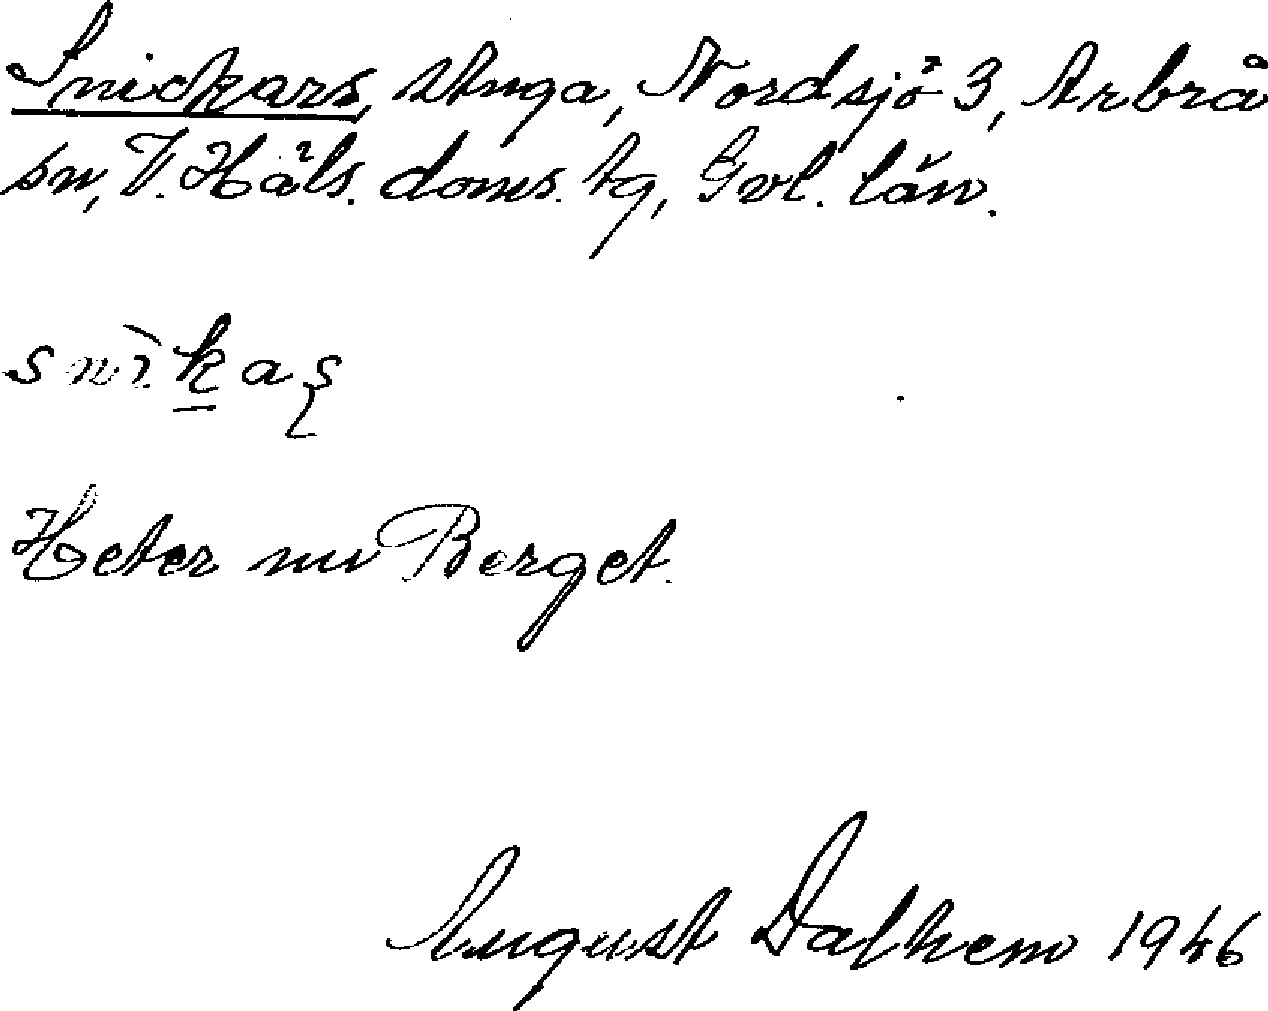 Snickars, stuga, Nordsjö 3, Arbrå
sn, V. Häls. doms. tg, Gvl. län.
snìk̲aș
Heter nu Berget.
August Dalhem 1946